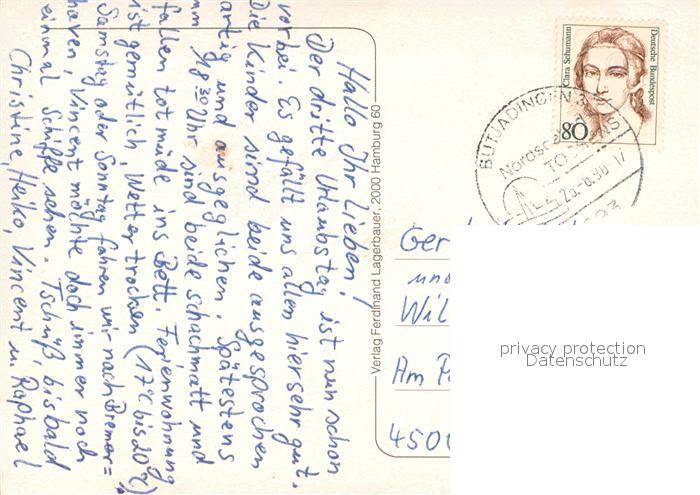 Hallo Ihr Lieben!
Der dritte Urlaubstag ist nun schon
vorbei. Es gefällt uns allen hier sehr gut.
Die Kinder sind beide ausgesprochen
artig und ausgeglichen. Spätestens
um 1/2 8 30 Uhr sind beide schachmatt und
fallen totmüde ins Bett. Ferienwohnung
ist gemütlich, Wetter trocken (17°C bis 20°C)
Samstag oder Sonntag fahren wir nach Bremer=
haven, Vincent möchte doch immer noch
einmal Schiffe sehen. Tschüß, bis bald
Christine, Heiko, Vincent u. Raphael
Verlag Ferdinand Lagerbauer, 2000 Hamburg 60
Clara Schumann
Deutsche Bundespost
80
BUTJADINGEN 3
Nordsee
TOSSENS
Ger
und
Wil
Am
450
privacy protection
Datenschutz